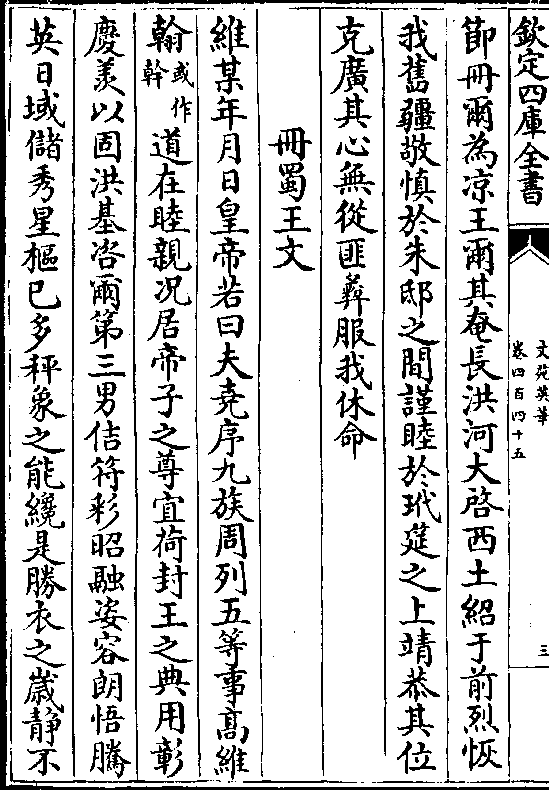 欽定四庫全書
文苑英華
卷四百四十五
三
節冊爾為凉王爾其奄長洪河大啓西土紹于前烈恢
我舊疆敬慎於朱邸之間謹睦於玳筵之上靖恭其位
克廣其心無從匪彛服我休命
冊蜀王文
維某年月日皇帝若曰夫堯序九族周列五等事髙維
翰或作幹道在睦親况居帝子之尊宜荷封王之典用彰
慶羡以固洪基咨爾第三男佶符彩昭融姿容朗悟騰
英日域儲秀星樞已多秤象之能纔是勝衣之嵗靜不